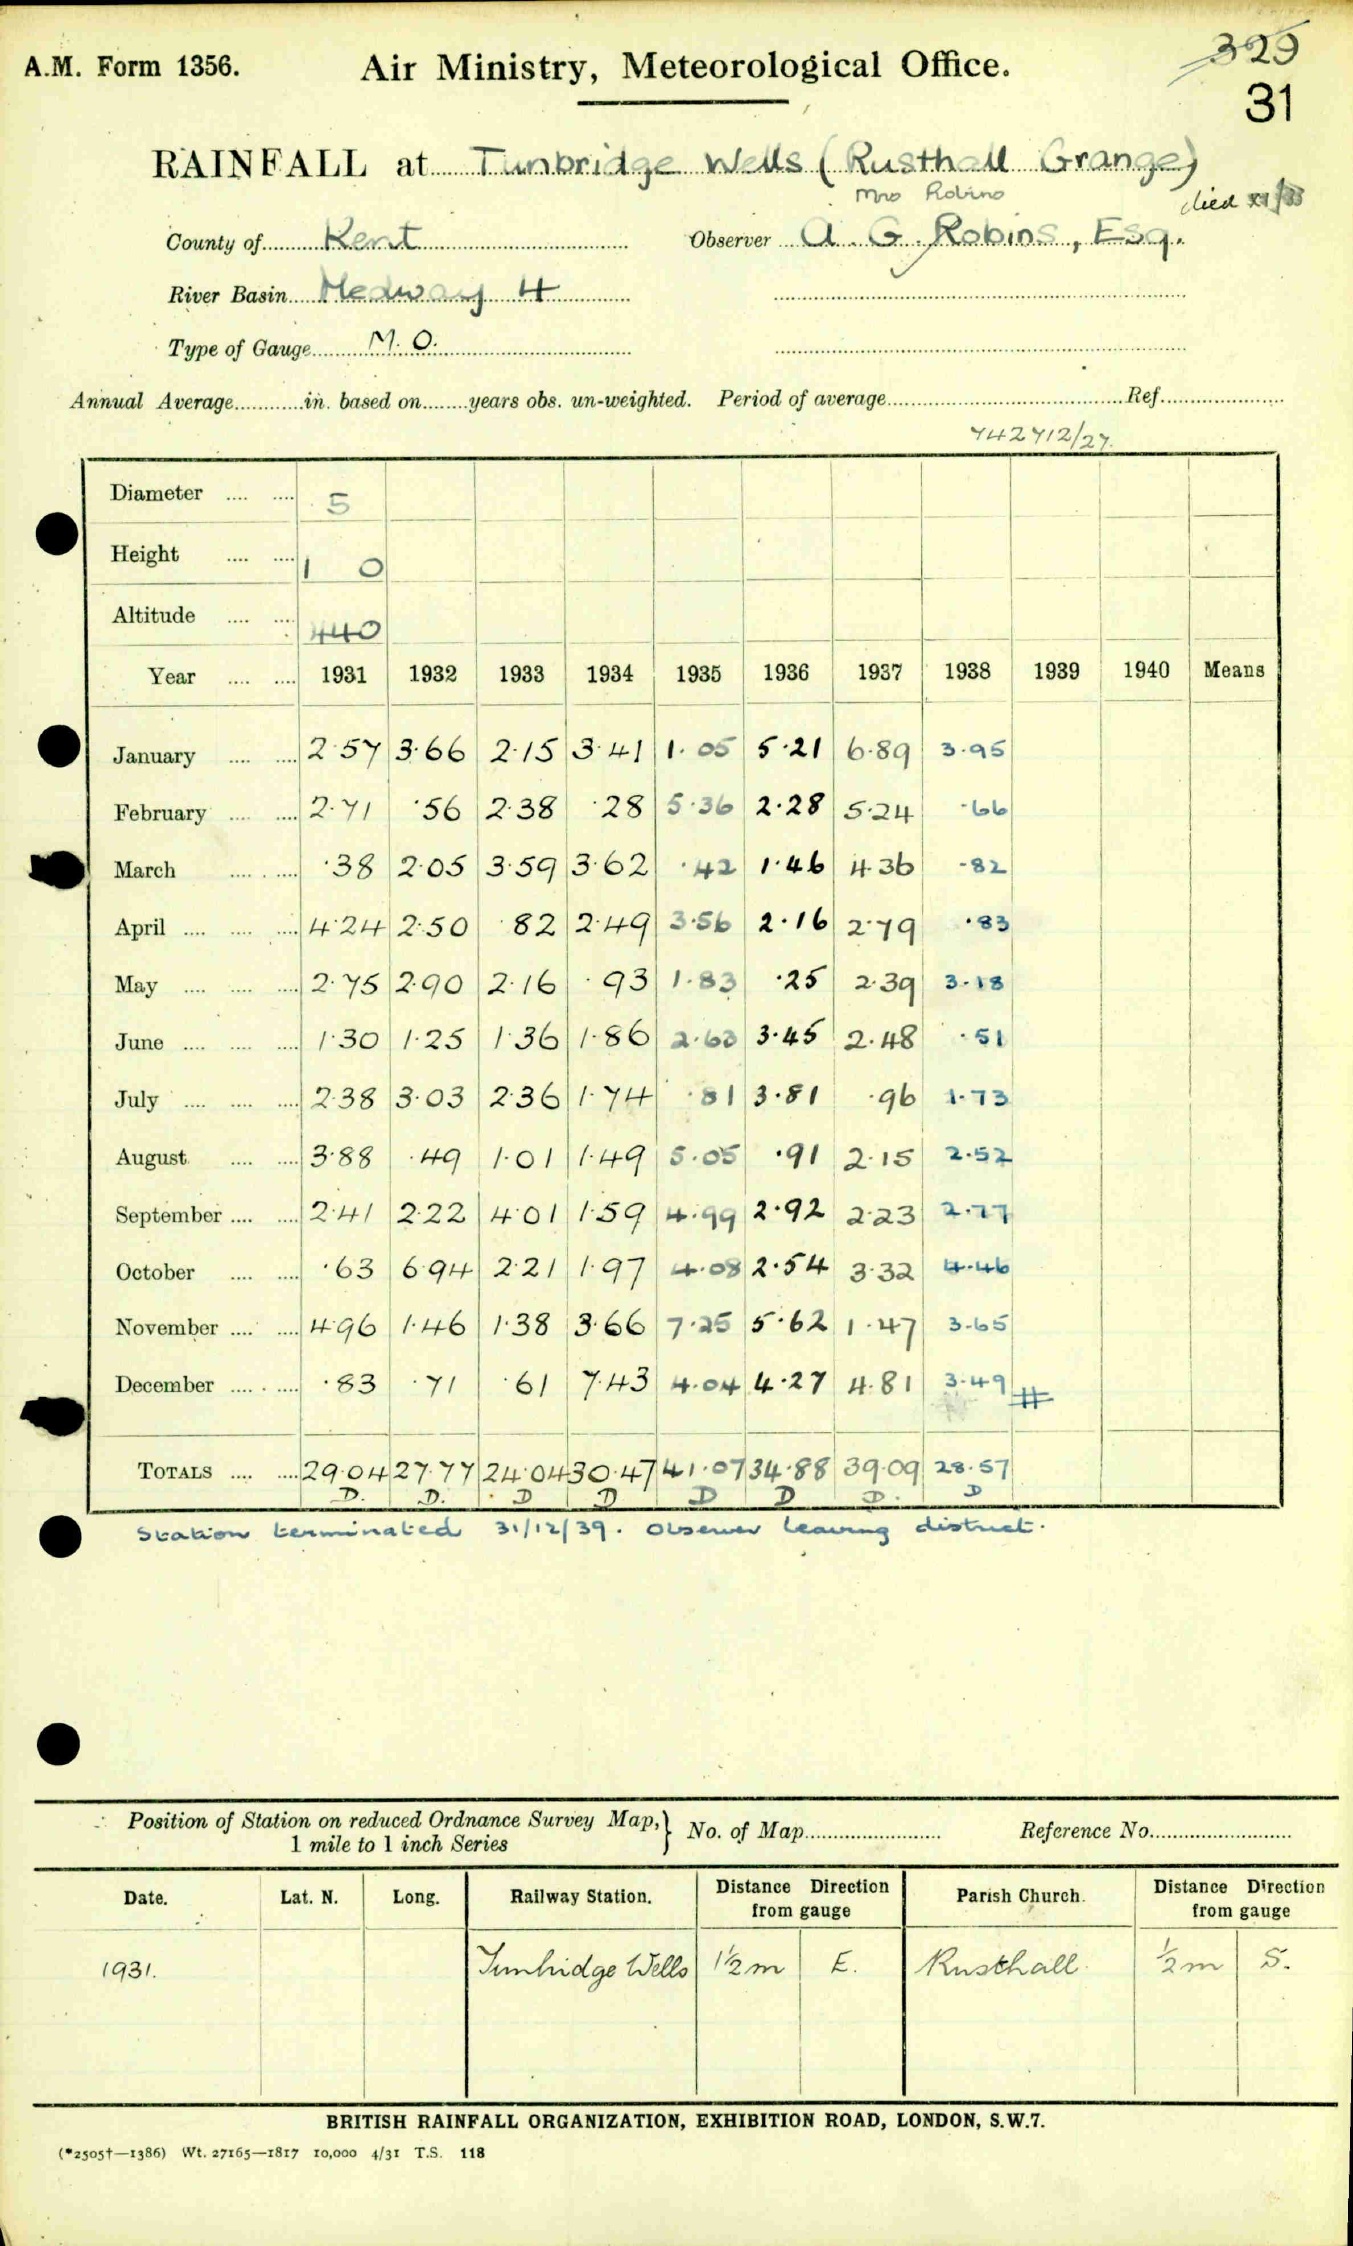 A.M. Form 1356.
Air Ministry, Meteorological Office.
329
31
RAINFALL at Tunbridge Wells (Rusthall Grange)
Mrs Robins
died
County of Kent
Observer A. G. Robins, Esq.
River Basin Medway 4
Type of Gauge M.O.
Annual Average in. based on years obs. un-weighted. Period of average Ref.
742712/27.
Diameter 5
Height 1 0
Altitude 440
Year 1931 1932 1933 1934 1935 1936 1937 1938 1939 1940 Means
January 2.57 3.66 2.15 3.41 1.05 5.21 6.89 3.95
February 2.71 .56 2.38 .28 5.36 2.28 5.24 .66
March .38 2.05 3.59 3.62 .42 1.46 4.36 .82
April 4.24 2.50 .82 2.49 3.56 2.16 2.79 .83
May 2.75 2.90 2.16 .93 1.83 .25 2.39 3.18
June 1.30 1.25 1.36 1.86 2.63 3.45 2.48 .51
July 2.38 3.03 2.36 1.74 .81 3.81 .96 1.73
August 3.88 .49 1.01 1.49 5.05 .91 2.15 2.52
September 2.41 2.22 4.01 1.59 4.99 2.92 2.23 2.77
October .63 6.94 2.21 1.97 4.08 2.54 3.32 4.46
November 4.96 1.46 1.38 3.66 7.25 5.62 1.47 3.65
December .83 .71 .61 7.43 4.04 4.27 4.81 3.49
TOTALS 29.04 27.77 24.04 30.47 41.07 34.88 39.09 28.57
D. D. D D D D D. D
Station terminated 31/12/39. Observer leaving district.
Position of Station on reduced Ordnance Survey Map, } No. of Map Reference No.
1 mile to 1 inch Series
Date. Lat. N. Long. Railway Station. Distance Direction from gauge Parish Church. Distance Direction from gauge
1931. Tunbridge Wells 1½ m E. Rusthall ½ m S.
BRITISH RAINFALL ORGANIZATION, EXHIBITION ROAD, LONDON, S.W.7.
(*2505†—1386) Wt. 27165—1817 10,000 4/31 T.S. 118